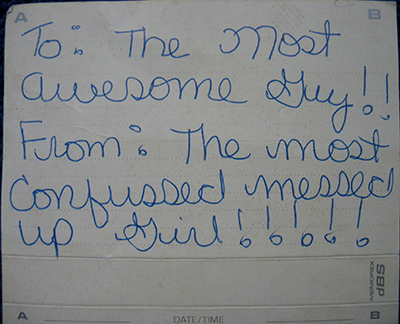 A B
To: The Most
awesome Guy!!
From: The most
confussed messed
up Girl!!!!!
MEMOREX SBP
A DATE/TIME B